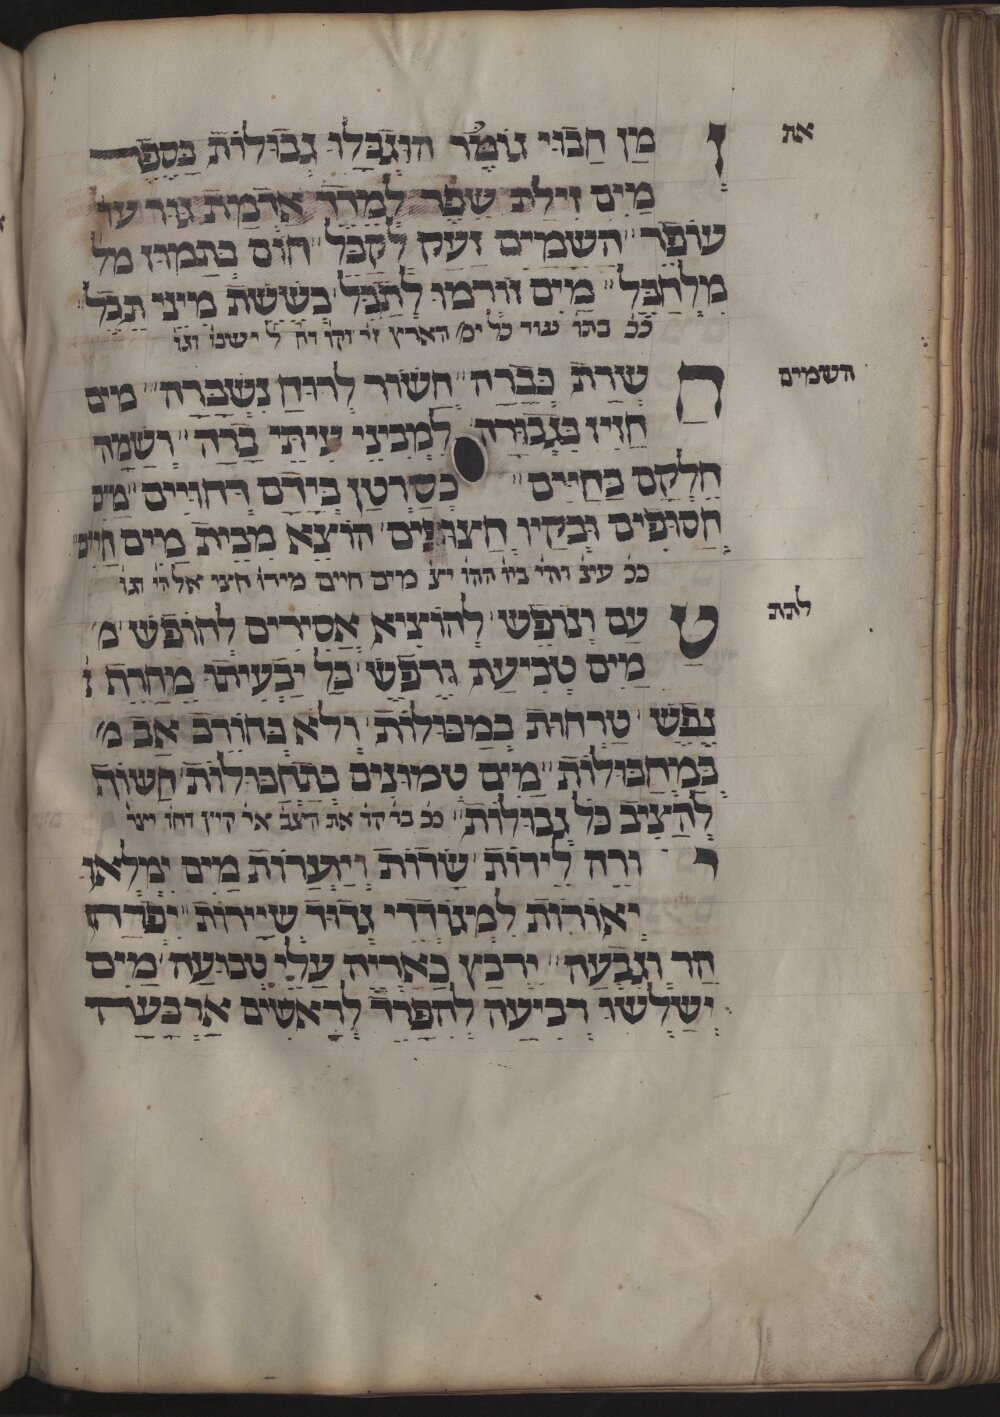 את
ז מן חבוי גומר הוגבלו גבולות כספר
מים זילת שפר למדד אדמת
עופר השמים זעק לקבל חום בתמוז מל
מלחבל מים זורמו לתבל כששת מיני תבל
ככ בתו עוד כל ימ הארץ זר וקו וח ל ישבו וגו
השמים
ח שרת כברה חשור לרוח נשברה מים
חזיז בגבורה למביני עיתי ברה רשמה
חלקם בחיים כשרטן בידם רחויים מים
חסופים ובקיו חצונים הוצא מבית מים חיים
ככ עינ והי ביו ההו יצ מים חיים מירו חצי אל הי וגו
לתת
ט עם ונופש להוציא אסירים לחופש מ
מים טביעת גרפש בל יבעיתו מחרת נ
נפש טרחות במבולות ולא בחורב אב מ
במחבולות מים טמונים בתחבולות חשוה
להציב כל גבולות
י ורה לירות שרות ויוערות מים ימלאו
יאורות למגודדי גדוד שיירות יפרח
הר וגבעה ירבץ כאריה עלי טבועה מים
ישלשו רביעה להפרד לראשים ארבעה